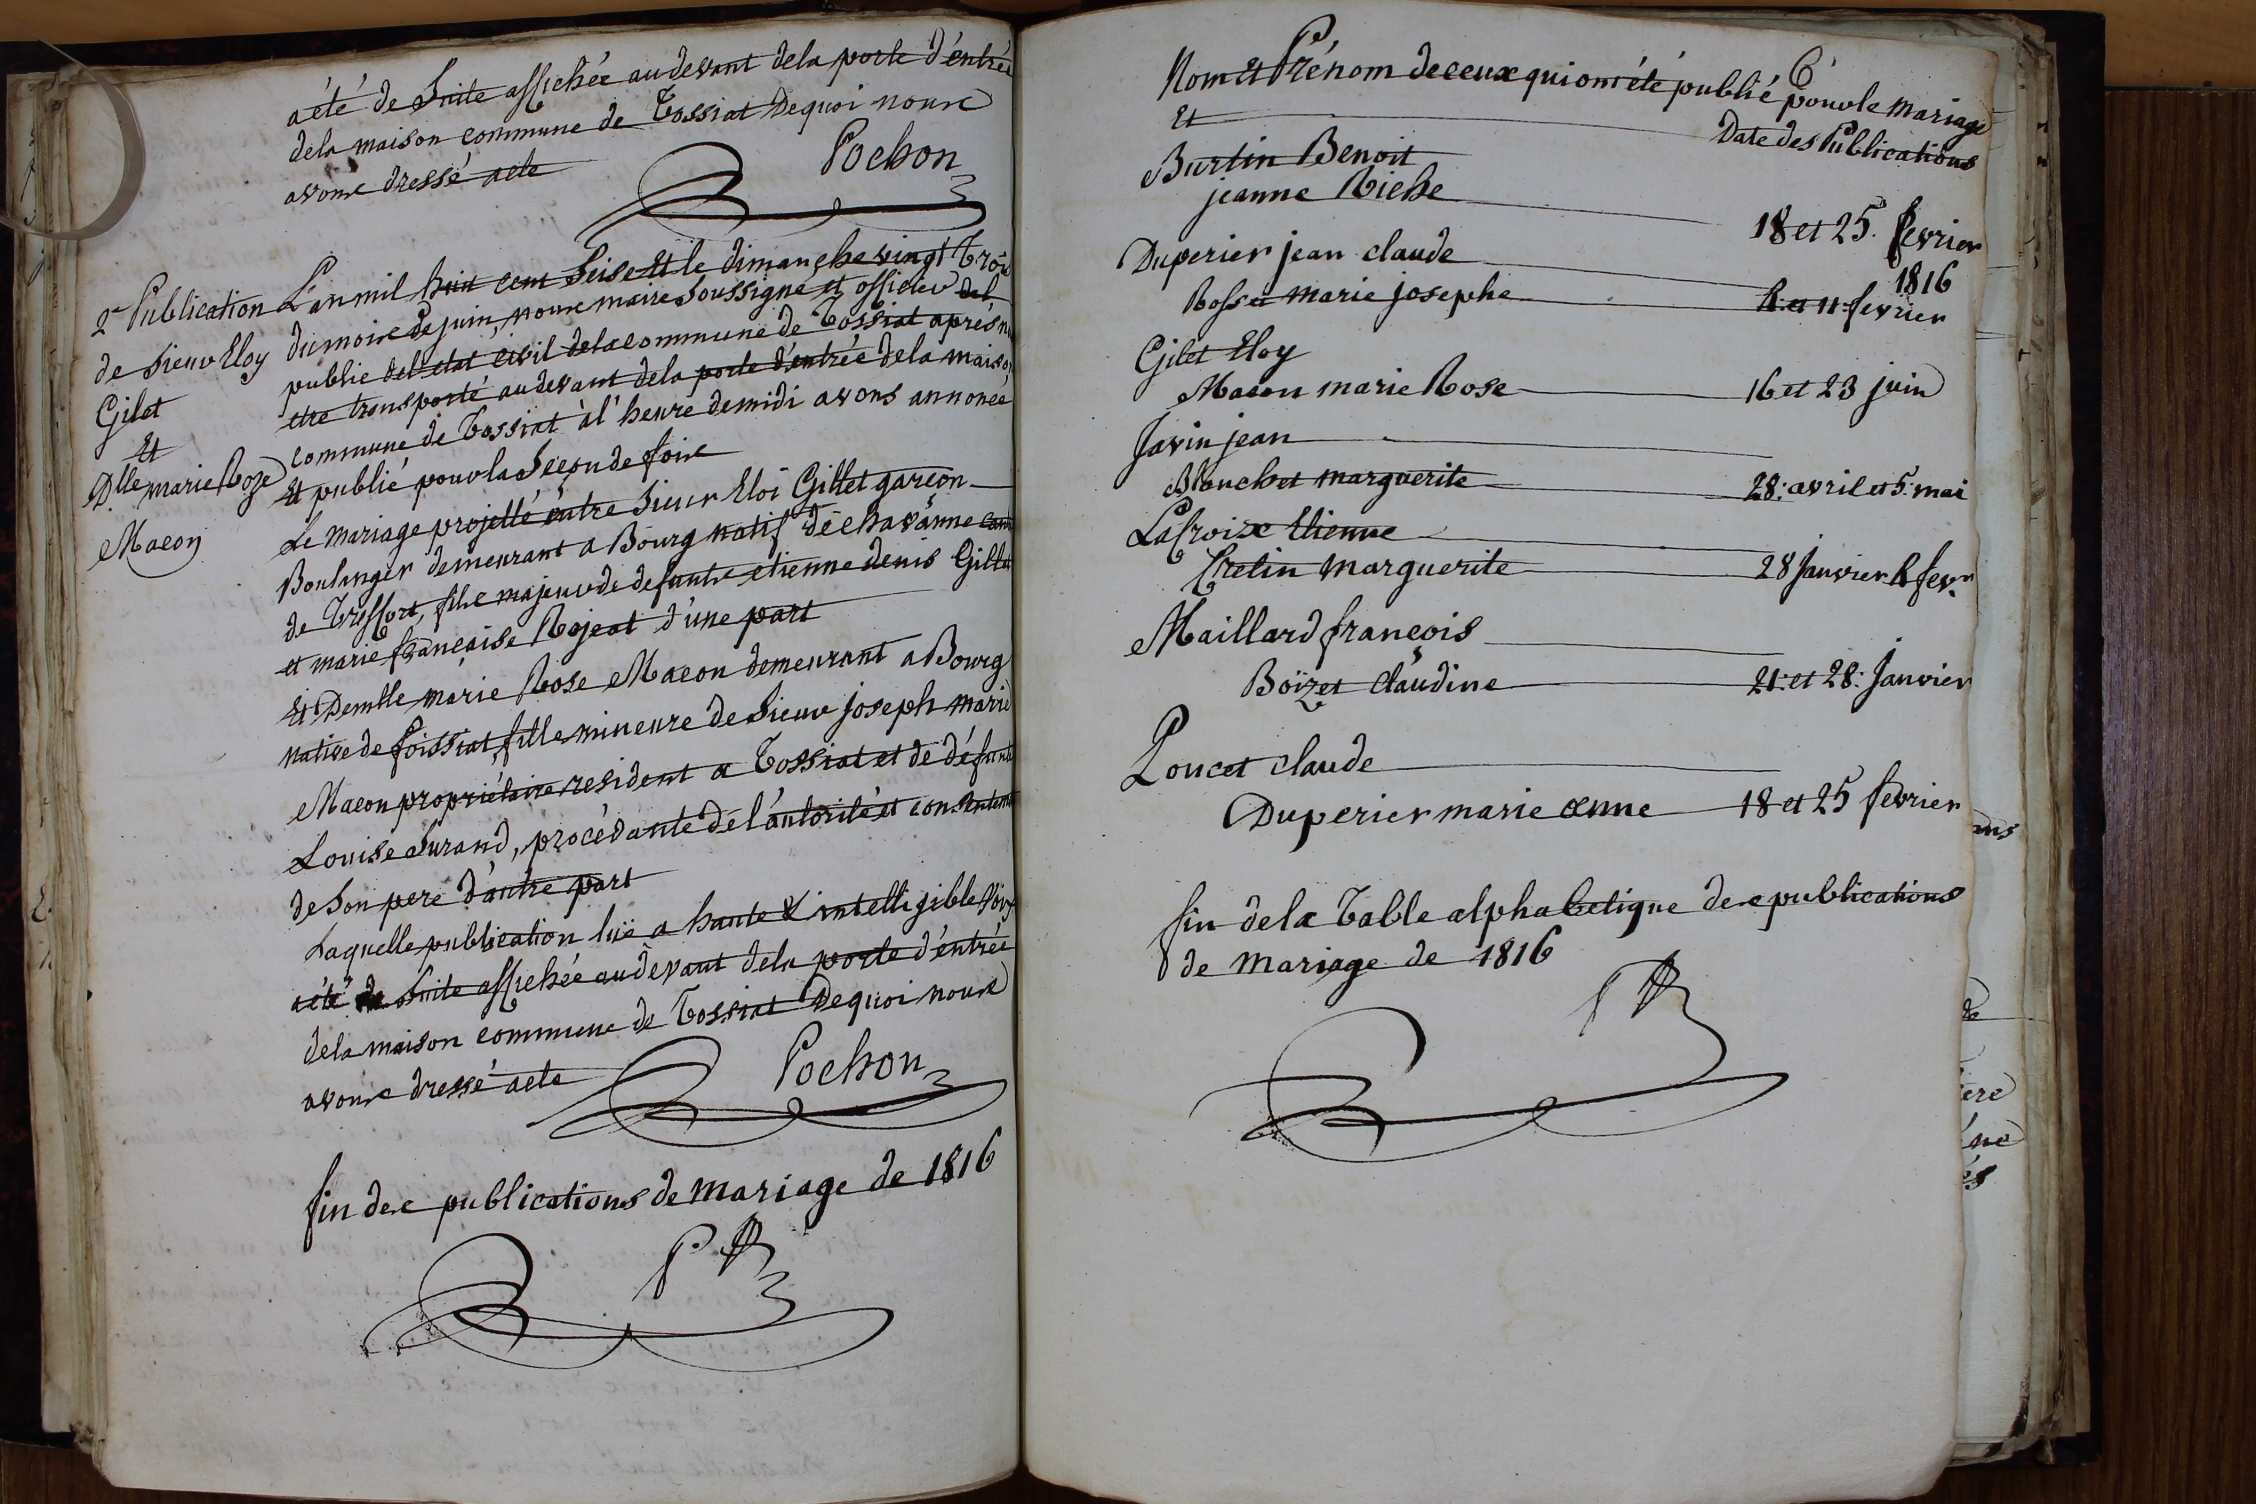 a été de Suite affichée au devant dela porte d'entrée
dela maison commune de Tossiat Dequoi nous
avons dressé acte
Pochon
2e Publication
de Sieur Eloy
Gilet
Et
Dlle marie Roze
Macon
L'an mil huit cent Seise Et le dimanche vingt Trois
du mois de juin, nous maire Soussigné et officier del
publie del'etat civil dela commune de Tossiat après n
etre transporté au devant dela porte d'entrée dela maison
commune de Tossiat à l'heure de midi avons annoncé
Et publié pour la Seconde fois
Le mariage projetté entre Sieur Eloi Gillet garçon
Boulanger demeurant a Bourg natif de chavanne cant
de Treffort, fils majeur de defunts etienne denis Gillet
et marie française Rojeat d'une part
Et Demlle marie Rose Macon demeurant a Bourg
native de foissiat, fille mineure de Sieur joseph marie
Macon propriétaire resident a Tossiat et de défunte
Louise Durand, procédante de l'autorité et consentemt
de Son pere d'autre part
Laquelle publication luë a haute & intelligible Voix
a été de Suite affichée au devant dela porte d'entrée
dela maison commune de Tossiat Dequoi nous
avons dressé acte
Pochon
fin des publications de mariage de 1816
Nom Et Prénom de ceux qui ont été publié pour le mariage
6
Et Date des Publications
Burtin Benoit
jeanne Riche 18 et 25. fevrier
1816
Duperier jean claude
Rosset marie josephe 4: et 11: fevrier
Gilet Eloy
Macon marie Rose 16 et 23 juin
Javin jean
Blanchet marguerite 28: avril et 5: mai
LaCroix Etienne
Cretin marguerite 28 Janvier 4 fevr
Maillard françois
Boïzet Claudine 21: et 28: Janvier
Poncet claude
Duperier marie anne 18 et 25 fevrier
fin dela Table alphabetique des publications
de mariage de 1816